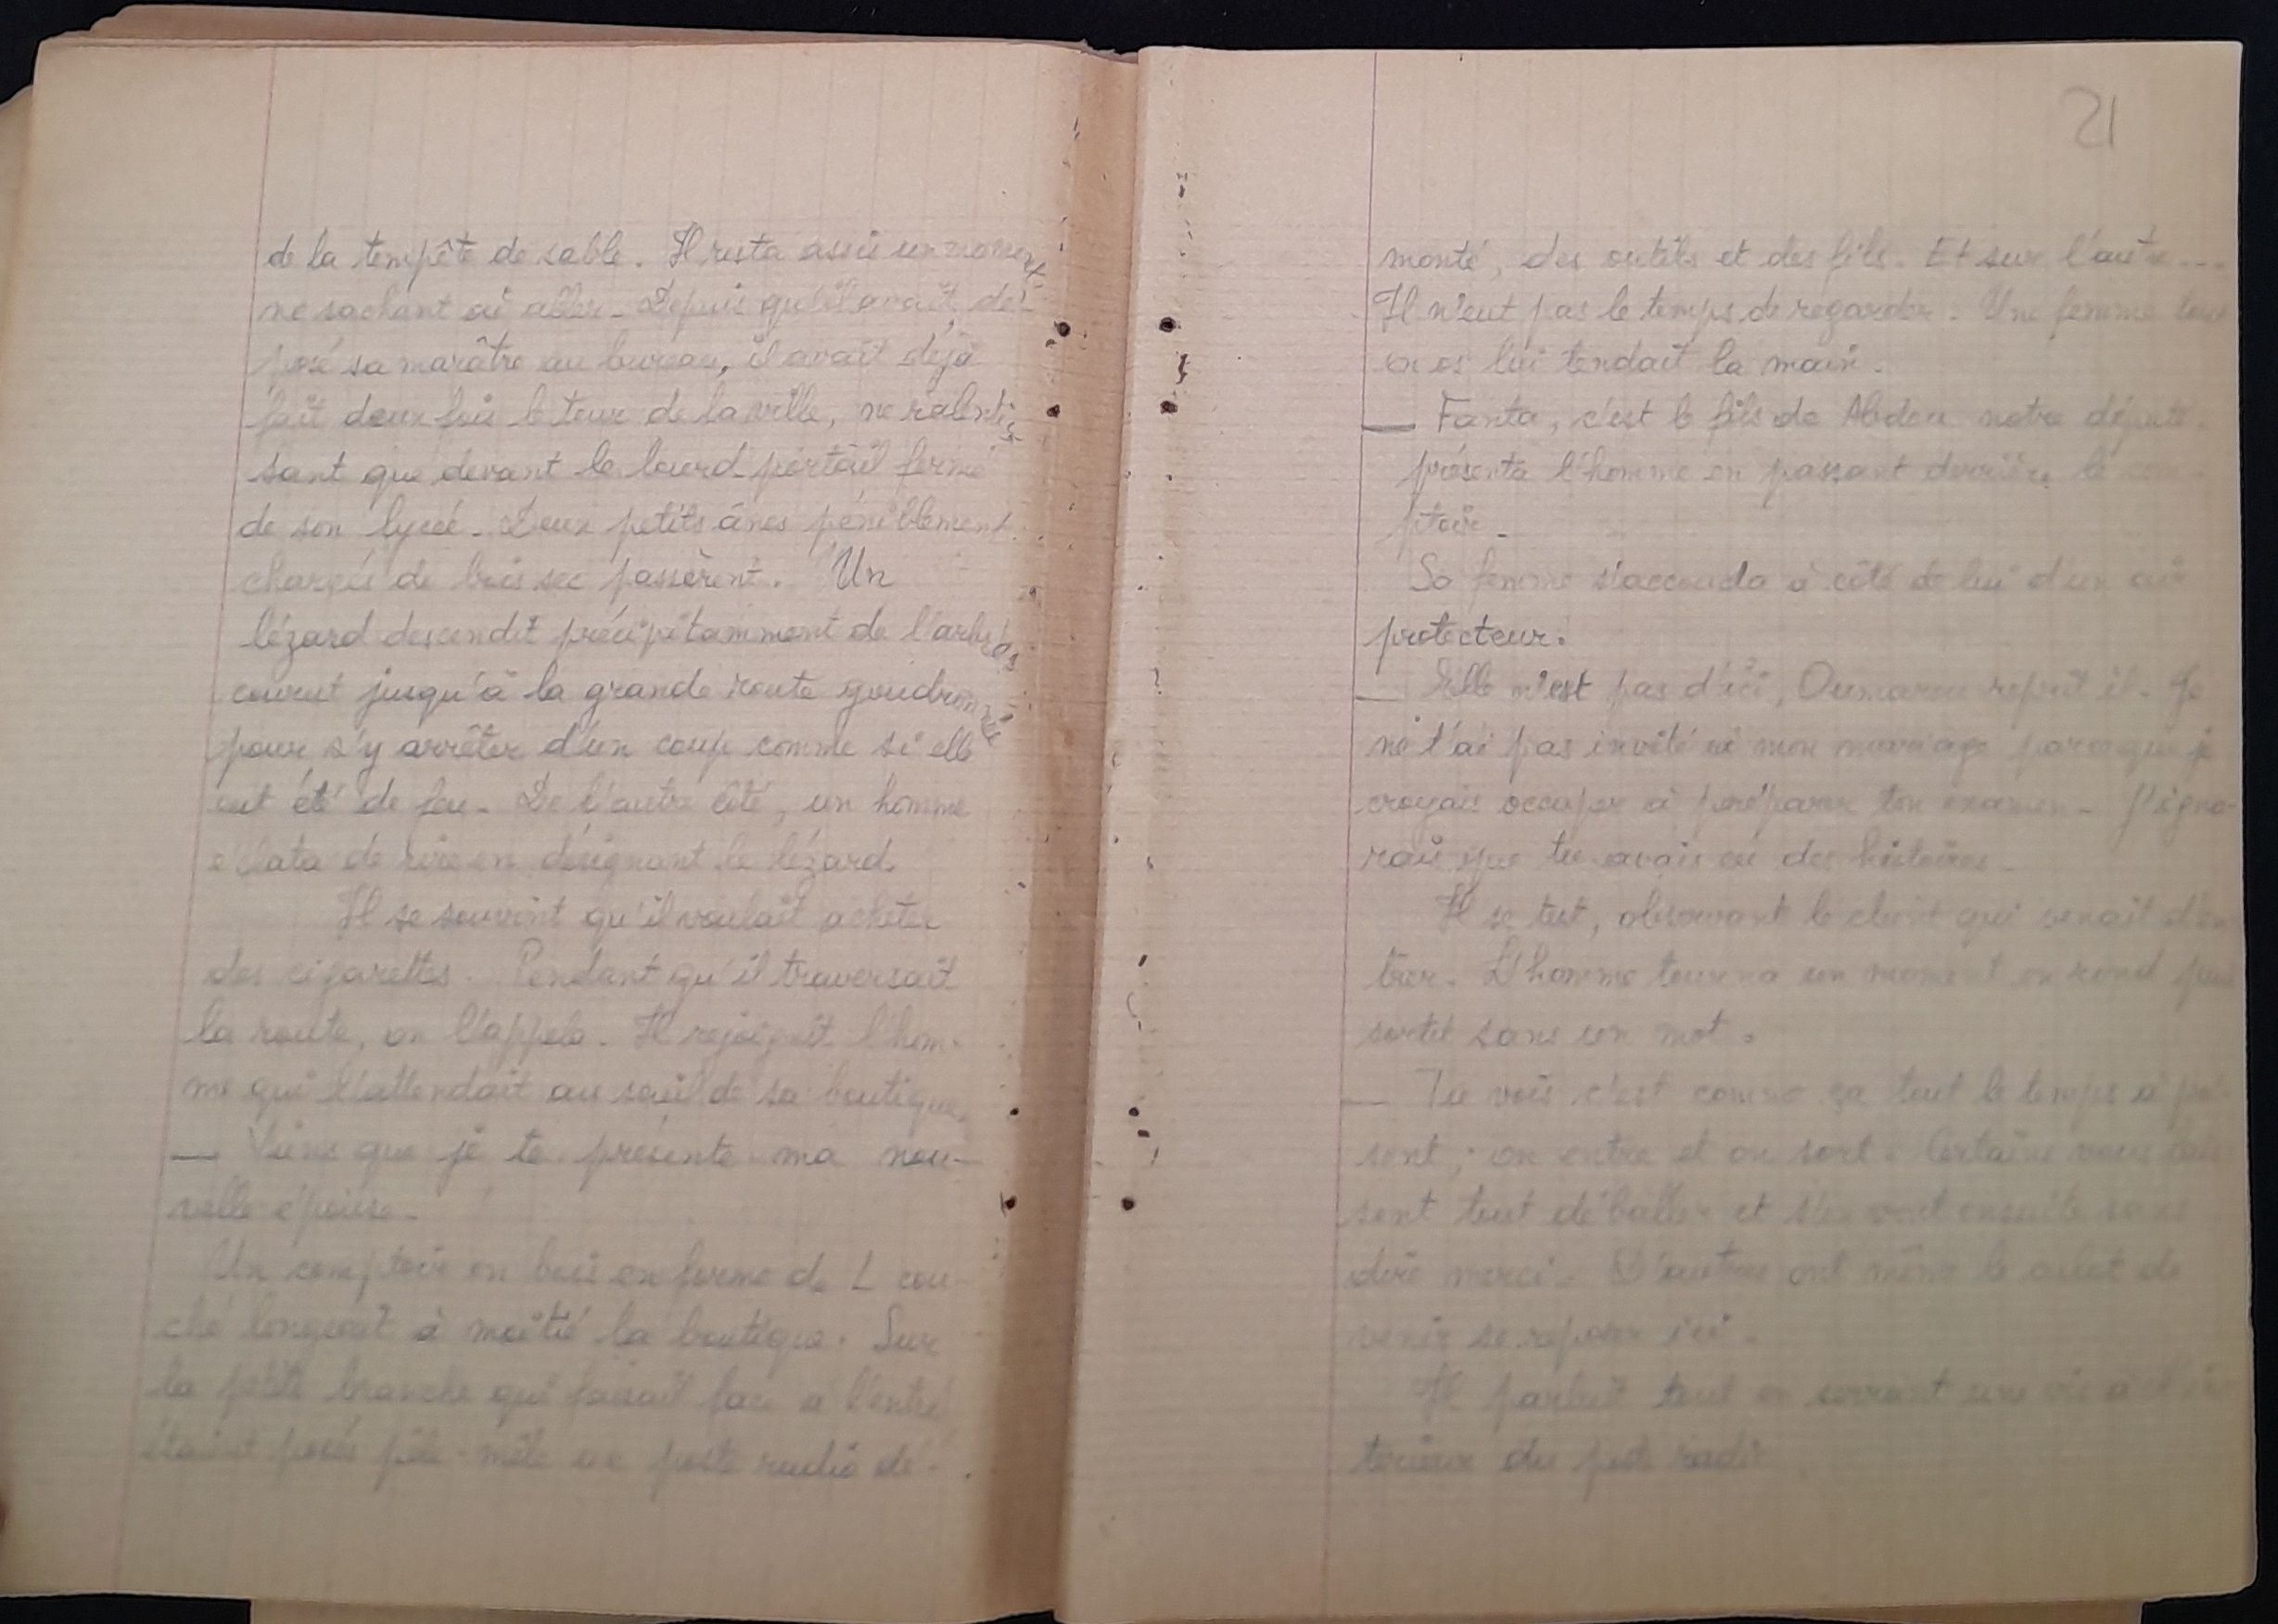 de la tempête de sable. Il resta assis un moment
ne sachant où aller. Depuis qu'il avait dé-
posé sa marâtre au bureau, il avait déjà
fait deux fois le tour de la ville, ne ralentis-
sant que devant le lourd portail fermé
de son lycée. Deux petits ânes péniblement
chargés de bois sec passèrent. Un
lézard descendit précipitamment de l'arbre
courut jusqu'à la grande route goudronnée
pour s'y arrêter d'un coup comme si elle
eut été de feu. De l'autre côté, un homme
éclata de rire en désignant le lézard
Il se souvint qu'il voulait acheter
des cigarettes. Pendant qu'il traversait
la route, on l'appela. Il rejoignit l'hom-
me qui l'attendait au seuil de sa boutique.
— Viens que je te présente ma nou-
velle épouse.
Un comptoir en bois en forme de L cou-
ché longeait à moitié la boutique. Sur
la petite branche qui faisait face à l'entrée
étaient posés pêle-mêle un poste radio dé-
21
monté, des outils et des fils. Et sur l'autre...
Il n'eut pas le temps de regarder. Une femme tout
en os lui tendait la main.
— Fanta, c'est le fils de Abdou notre député.
présenta l'homme en passant derrière le com-
ptoir.
Sa femme s'accouda à côté de lui d'un air
protecteur.
— Elle n'est pas d'ici, Oumarou reprit il. Je
ne t'ai pas invité à mon mariage parce que je
croyais occuper à préparer ton examen. J'igno-
rais que tu avais eu des histoires.
Il se tut, observant le client qui venait d'en-
trer. L'homme tourna un moment en rond puis
sortit sans un mot.
— Tu vois c'est comme ça tout le temps à pré-
sent; on entre et on sort. Certains vous lais-
sent tout déballer et s'en vont ensuite sans
dire merci. D'autres ont même le culot de
venir se reposer ici.
Il parlait tout en serrant une vis à l'in-
térieur du poste radio